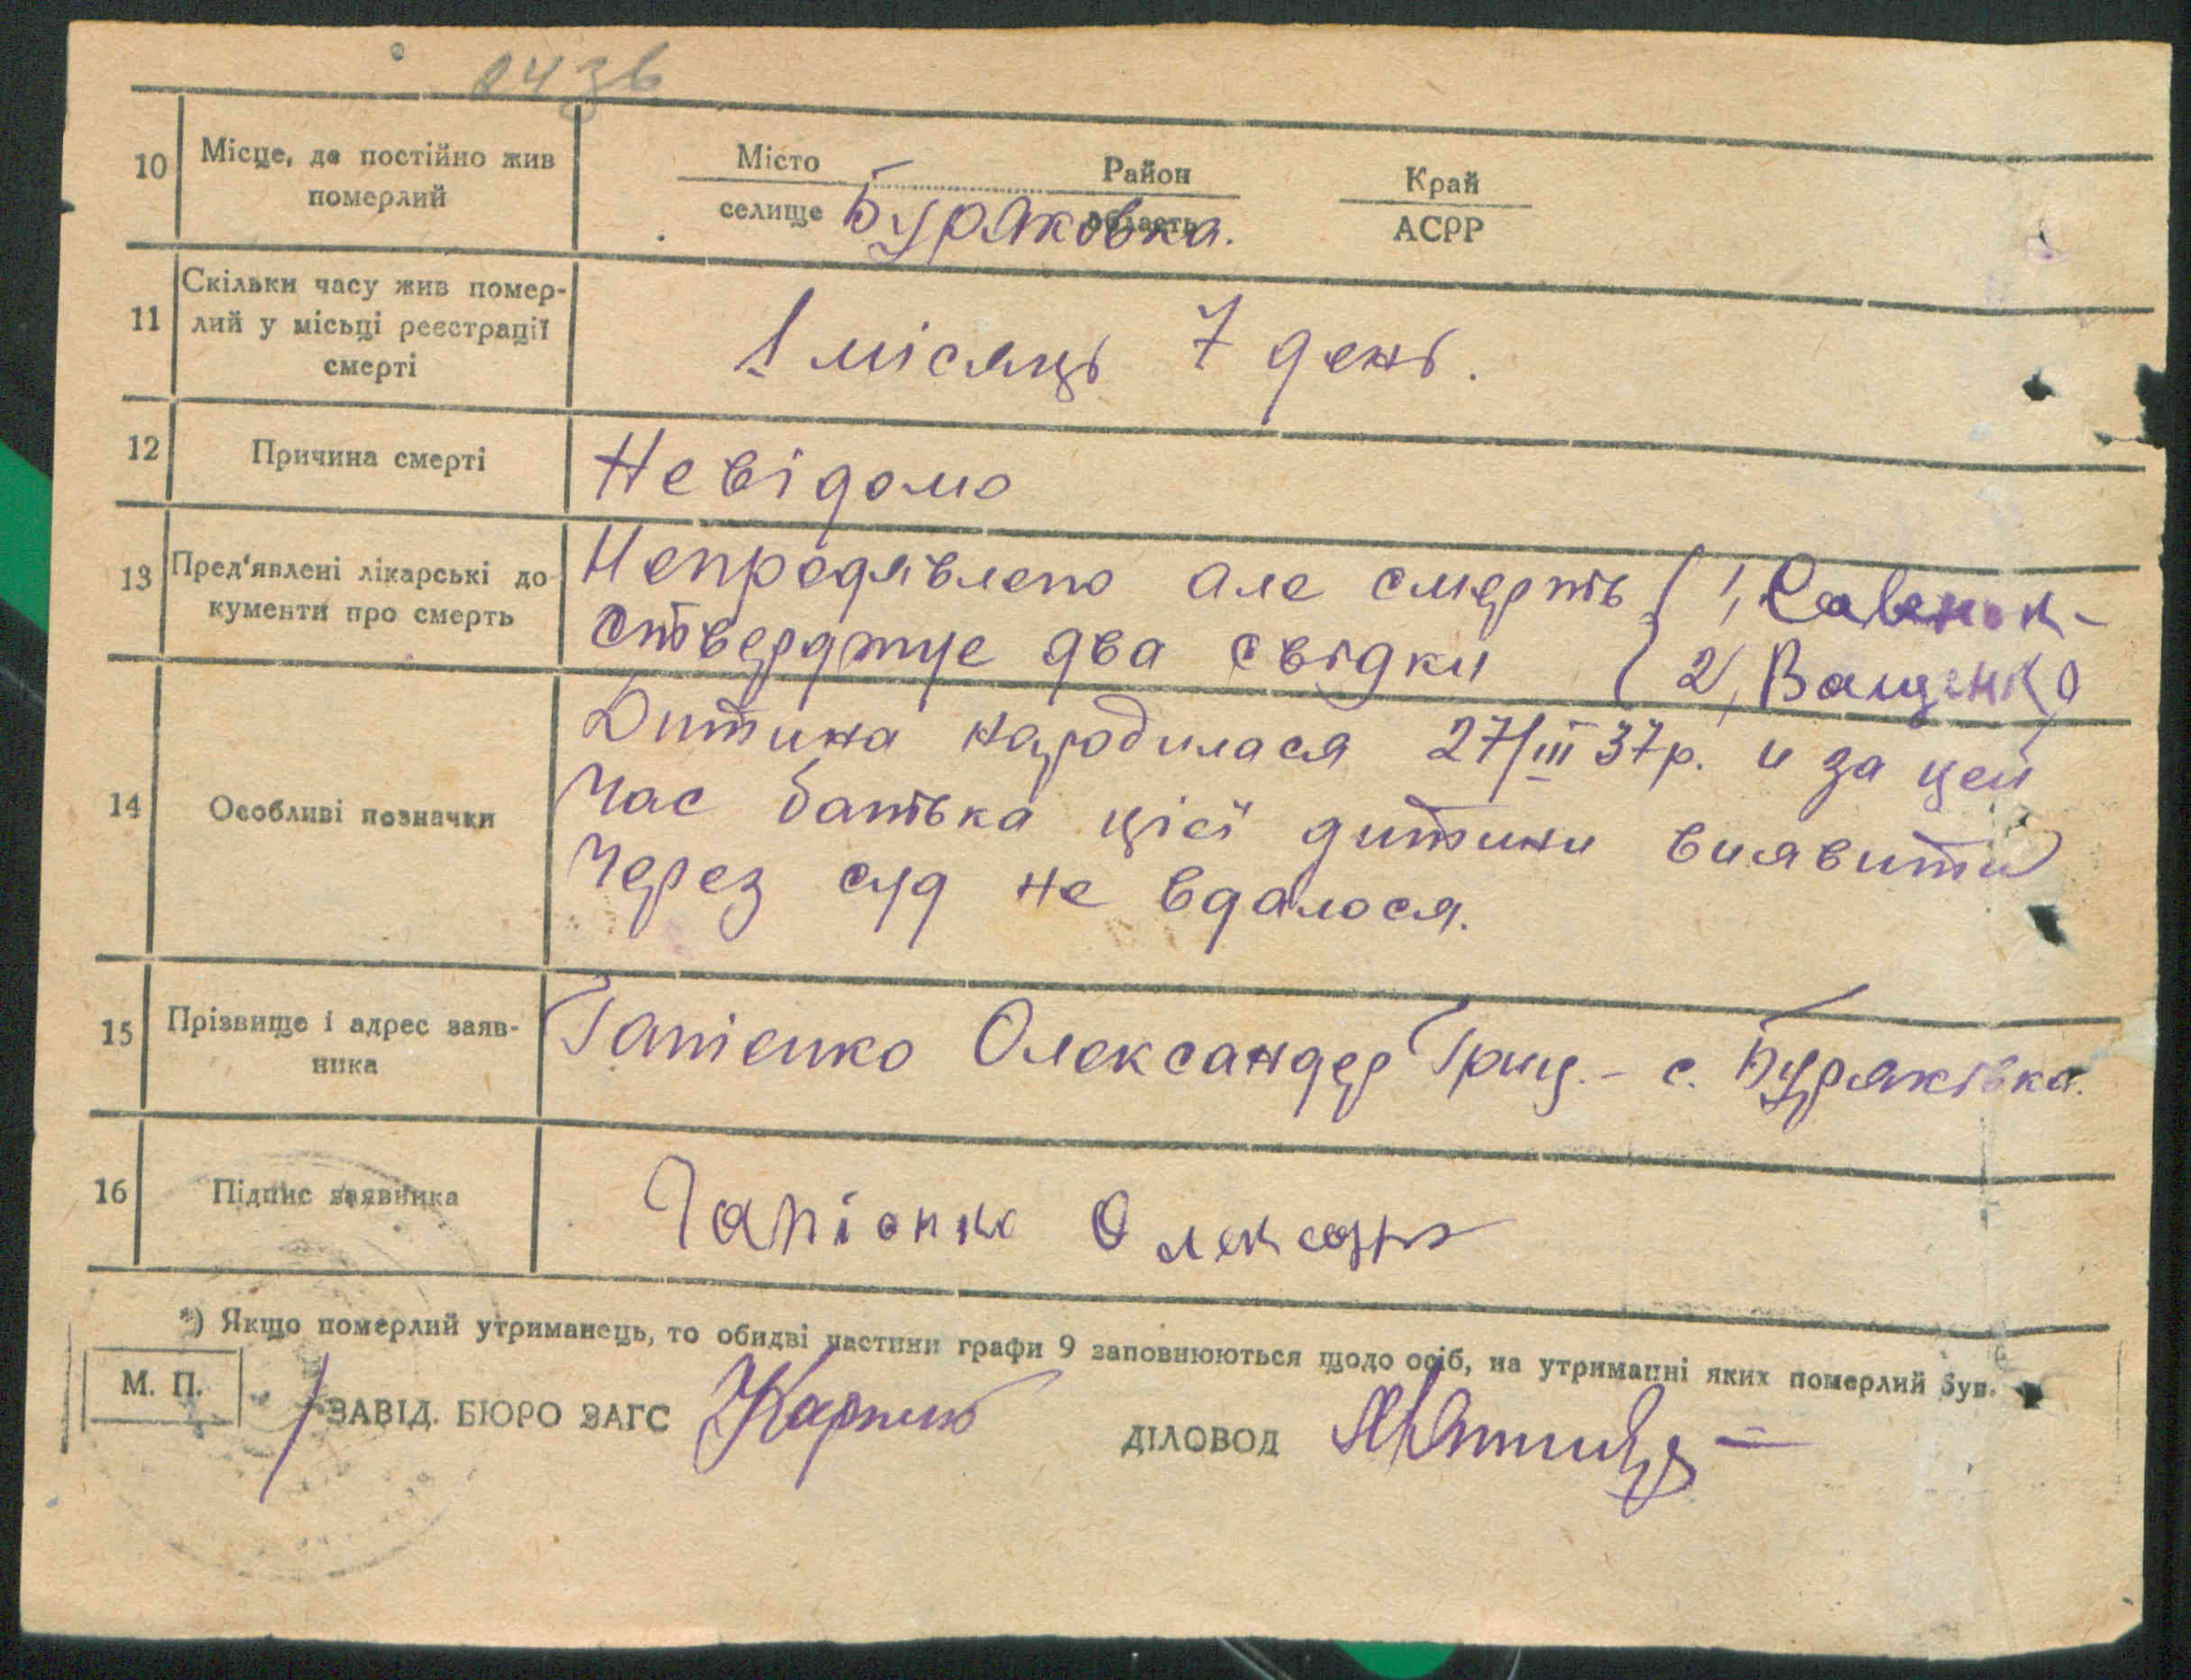 04зв
10 Місце, де постійно жив
померлий
Місто
селище
Район
область
Край
АСРР
Буряковка.
11 Скільки часу жив помер-
лий у місьці реєстрації
смерті
1 місяць 7 день.
12 Причина смерті
Невідомо
13 Пред'явлені лікарські до
кументи про смерть
Непредявлено але смерть { 1, Савенок-
стверджує два свідки { 2, Ващенко
14 Особливі позначки
Дитина народилася 27/III 37р. и за цей
час батька цієї дитини виявити
через суд не вдалося.
15 Прізвище і адрес заяв-
ника
Гапієнко Олександер Гриц. - с. Буряківка.
16 Підпис заявника
Гапіенко Олександ
*) Якщо померлий утриманець, то обидві частини графи 9 заповнюються щодо осіб, на утриманні яких померлий був.
М. П.
ЗАВІД. БЮРО ЗАГС
ДІЛОВОД